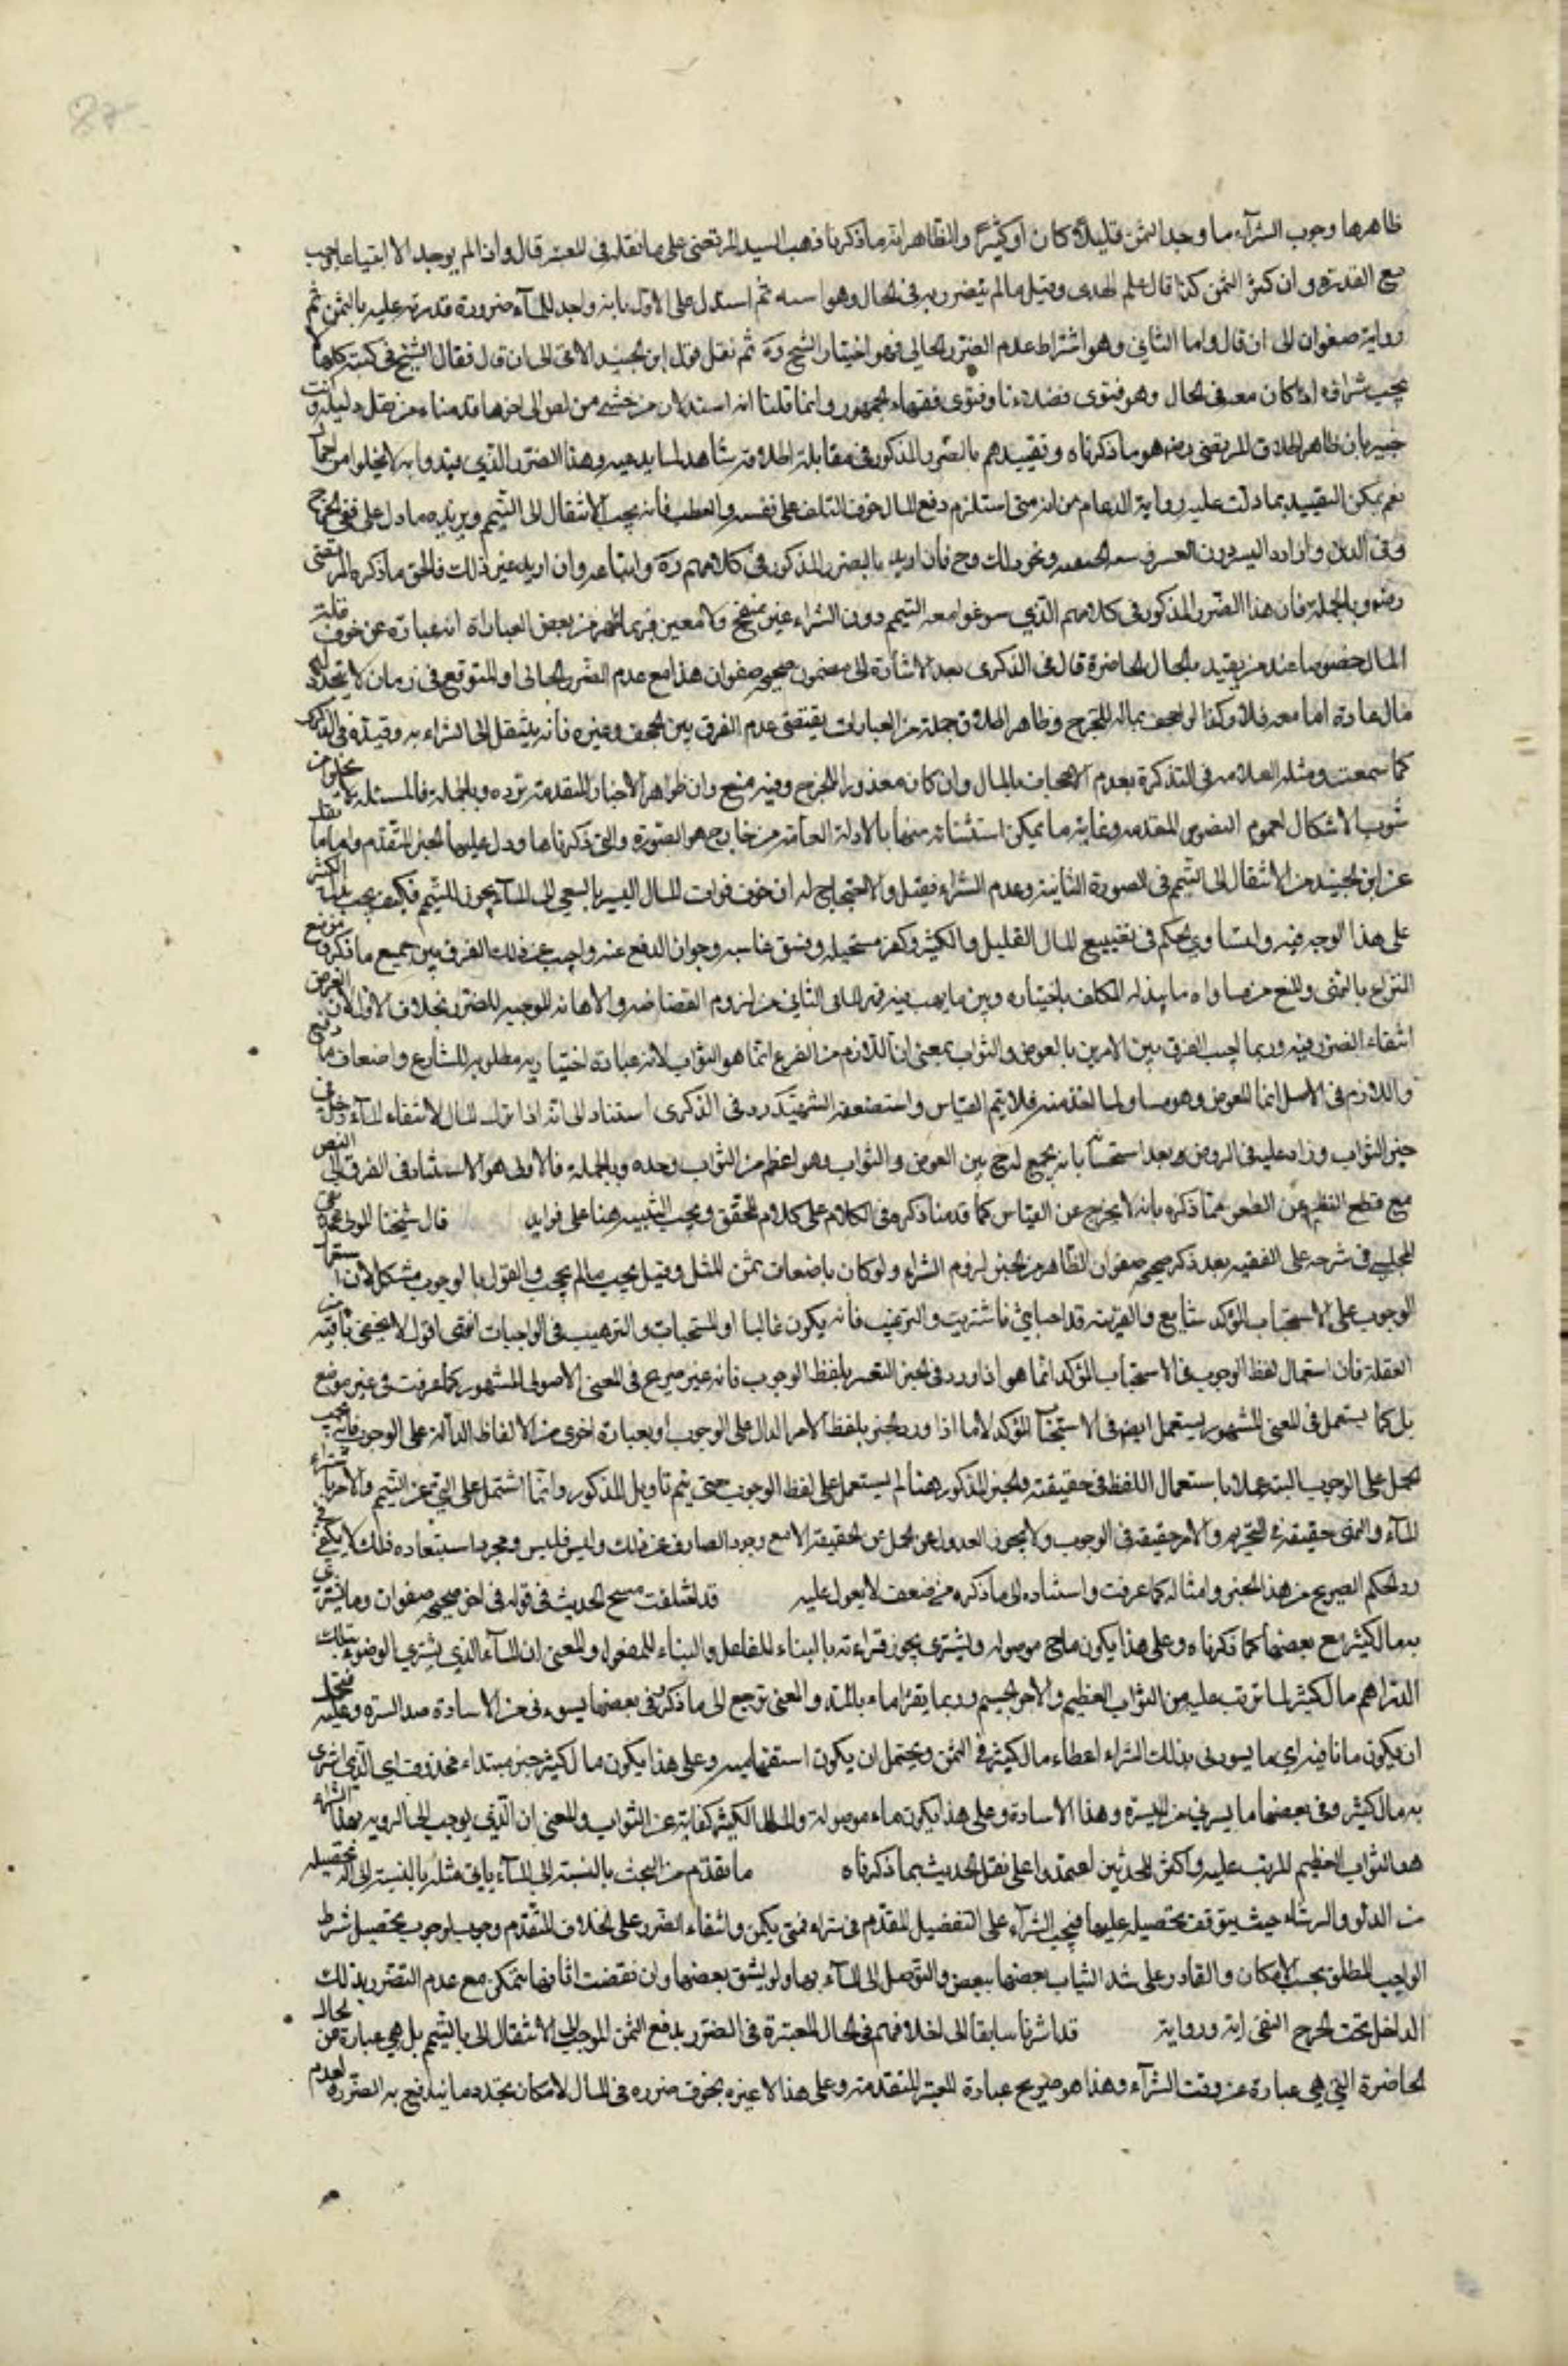 ظاهرها وجوب الشرآء ما وجد الثمن قليلا كان او كثيرًا والظاهر انه ما ذكرنا ذهب السيد المرتضى على ما نقله فى المعتبر قال وان لم يوجد الا ابتياعا وجب
مع القدرة وان كثر الثمن كذا قال علم الهدى وقيل ما لم يتضرر به فى الحال وهو اشبه ثم استدل على الاول بانه واجد للمآء ضرورة قدرته عليه بالثمن ثم
رواية صفوان الى ان قال واما الثانى وهو اشتراط عدم الضرر الحالي فهو اختيار الشيخ ره ثم نقل قول ابن الجنيد الاتى الى ان قال فقال الشيخ فى كتبه كلها
يجب شراؤه اذا كان معه فى الحال وهو فتوى فضلاءنا وفتوى فقهاء الجمهور وانما قلنا انه
خبير بان ظاهر اطلاق المرتضى رضه هو ما ذكرناه وتقييدهم بالضرر المذكور فى مقابلة اطلاقه وهذا الضرر الذي لا يخلوا من اجمال
نعم يمكن التقييد بما دلت عليه رواية الدعام من انه متى استلزم دفع المال خوف التلف على نفسه والعطب فانه يجب الانتقال الى التيمم ويؤيده ما دل على نفى الحرج
فى الدين وارادة اليسر دون العسر وسعة الحنيفية ونحو ذلك وح فان اريد بالضرر المذكور فى كلامهم ره واتباعه وان اريد غير ذلك فالحق ما ذكره المرتضى
رضه وبالجملة فان هذا الضرر المذكور فى كلامهم الذي سوغوا معه التيمم دون الشراء غير منقح ولا معين فربما ظهر من بعض العبارات انه عبارة عن خوف قلة
المال خصوصا عند من يقيد بالحال الحاضرة قال فى الذكرى بعد الاشارة الى مضمون صحيحة صفوان هذا مع عدم الضرر الحالى او المتوقع فى زمان لا يتجدد فيه
مال عادة اما معه فلا وكذا لو اجحف بماله للحرج وظاهر اطلاق جملة من العبارات يقتضى عدم الفرق بين المجحف وغيره فانه ينتقل الى الشراء به وقيده فى الذكرى
كما سمعت ومثله العلامه فى التذكرة بعدم الاجحاف بالمال وان كان مقدورا للحرج وفيه منع وان ظواهر الاخبار المتقدمة ترده وبالجملة فالمسئلة لا تخلو من
شوب الاشكال لعموم النصوص المتقدمه وغاية ما يمكن استثنائه منها بالادلة العامة من خارج هو الصورة التي ذكرناها ودل عليها الخبر المتقدم واما ما نقل
عن ابن الجنيد من الانتقال الى التيمم فى الصورة الثانية وعدم الشراء فيقبل والاحتجاج له ان خوف فوات المال اليسير بالسعي الى المآء يجوز التيمم فكيف يجب بذل الكثير
على هذا الوجه فيه وانتساوي الحكم فى تضييع المال القليل والكثير وكفر مستحيله وفسق غاصبه وجواز الدفع عنه واجيب عن ذلك الفرق بين جميع ما ذكر فى موضع
النزاع بالنص والمنع من مساواة ما يبذله المكلف باختياره وبين ما ينهب منه قهرا لما فى الثاني من لزوم الغضاضه والاهانه الموجبه للضرر بخلاف الاول لان الفرض
انتفاء الضرر فيه وربما اجيب الفرق بين الامرين بالعوض والثواب بمعنى ان اللازم من الفرع انما هو الثواب لانه عبادة اختيارية مطلوبه للشارع واضعاف ما دفع
واللازم فى الاصل انما العوض وهو مساو لما اخذ منه فلا يتم القياس واستضعفه الشهيد ره فى الذكرى استنادا الى انه اذا ترك المال لابتغاء المآء دخل فى
حيز الثواب وزاد عليه فى الروض وبعد استحسنه بانه يجمع له ح بين العوض والثواب وهو اعظم من الثواب وحده وبالجملة فالاولى هو الاستناد فى الفرق الى النص
مع قطع النظر عن الطعن عما ذكره بانه لا يخرج عن القياس كما قدمنا ذكره فى الكلام على كلام المحقق ويجب التنبيه هنا على فوايد قال شيخنا المولى محمد تقى
المجلسي فى شرحه على الفقيه بعد ذكر صحيحة صفوان الظاهر من الخبر لزوم الشراء ولو كان باضعاف ثمن المثل وقيل يجب ما لم يجحف والقول بالوجوب مشكل لان استعمال
الوجوب على الاستحباب المؤكد شايع والقرينة قد اصابنى فاشتريت والترغيب فانه يكون غالبا او المستحبات والترهيب فى الواجبات انتهى اقول لا يخفى ما فيه من
الغفلة فان استعمال لفظ الوجوب فى الاستحباب المؤكد انما هو اذا ورد فى الخبر التعبير بلفظ الوجوب فانه غير صريح فى المعنى الاصولى المشهور كما عرفت فى غير موضع
بل كما يستعمل فى المعنى المشهور يستعمل ايضا فى الاستحباب المؤكد لا ما اذا ورد الخبر بلفظ الامر الدال على الوجوب او بعبارة اخرى من الالفاظ الدالة على الوجوب فانه يجب
الحمل على الوجوب البتة عملا باستعمال اللفظ فى حقيقته والخبر المذكور هنا لم يستعمل على لفظ الوجوب حتى يتم تاويل المذكور وانما اشتمل على النهى عن التيمم والامر بشراء
المآء والنهى حقيقة فى التحريم والامر حقيقة فى الوجوب ولا يجوز العدول عن الحمل عن الحقيقة الا مع وجود الصارف عن ذلك وليس فليس ومجرد استبعاده ذلك لا يكفى فى
رد الحكم الصريح من هذا الخبر وامثاله كما عرفت واستناده الى ما ذكره من ضعف لا يعول عليه قد اختلفت نسخ الحديث فى قوله فى اخر صحيحة صفوان وما يشترى
به مال كثير مع بعضها كما ذكرناه وعلى هذا يكون ما ح موصوله ويشترى يجوز قراءته بالبناء للفاعل والبناء للمفعول والمعنى ان المآء الذي يشتري للوضوء بتلك
الدراهم مال كثير لما ترتب عليه من الثواب العظيم والاجر الجسيم وربما يقرأ ماء بالمد والمعنى يرجع الى ما ذكر وفى بعضها يسوء نى من الاساءة ضد المسرة وعليه فيحتمل
ان يكون ما نافية اي ما يسوءنى بذلك الشراء اعطاء مال كثير فى الثمن ويحتمل ان يكون استفهامية وعلى هذا يكون مال كثير خبر مبتداء محذوف اي الذي اشترى
به مال كثير وفى بعضها ما يسرنى من المسرة وهذا الاساءة وعلى هذا يكون ماء موصولة والمال الكثير كفاية عن الثواب والمعنى ان الذي يوجب لى السرور بهذا الشراء
هو الثواب العظيم المرتب عليه واكثر المحدثين اعتمدوا على نقل الحديث بما ذكرناه ما تقدم من البحث بالنسبة الى المآء ياتى مثله بالنسبة الى آلة تحصيله
من الدلو والرشاء حيث يتوقف تحصيله عليها فيجب الشرآء على التفصيل المتقدم فى شراء فمتى يكن وانتفاء الضرر على الخلاف المتقدم وجب لوجوب تحصيل شرط
الواجب المطلق بحسب الامكان والقادر على شد الثياب بعضها ببعض والتوصل الى المآء بها ولو بشق بعضها وان نقضت اثمانها متمكن مع عدم التضرر بذلك
الداخل تحت الحرج المنفى اية ورواية قد اشرنا سابقا الى اختلافهم فى الحال المعتبرة فى الضرر بدفع الثمن الموجب الى الانتقال الى بالتيمم بل هي عبارة عن الحال
الحاضرة التي هي عبارة عن وقت الشرآء وهذا هو صريح عبارة المعتبر المتقدمة وعلى هذا لا عبرة بخوف ضرره فى المال لامكان تجدد ما يندفع به الضرر لعدم